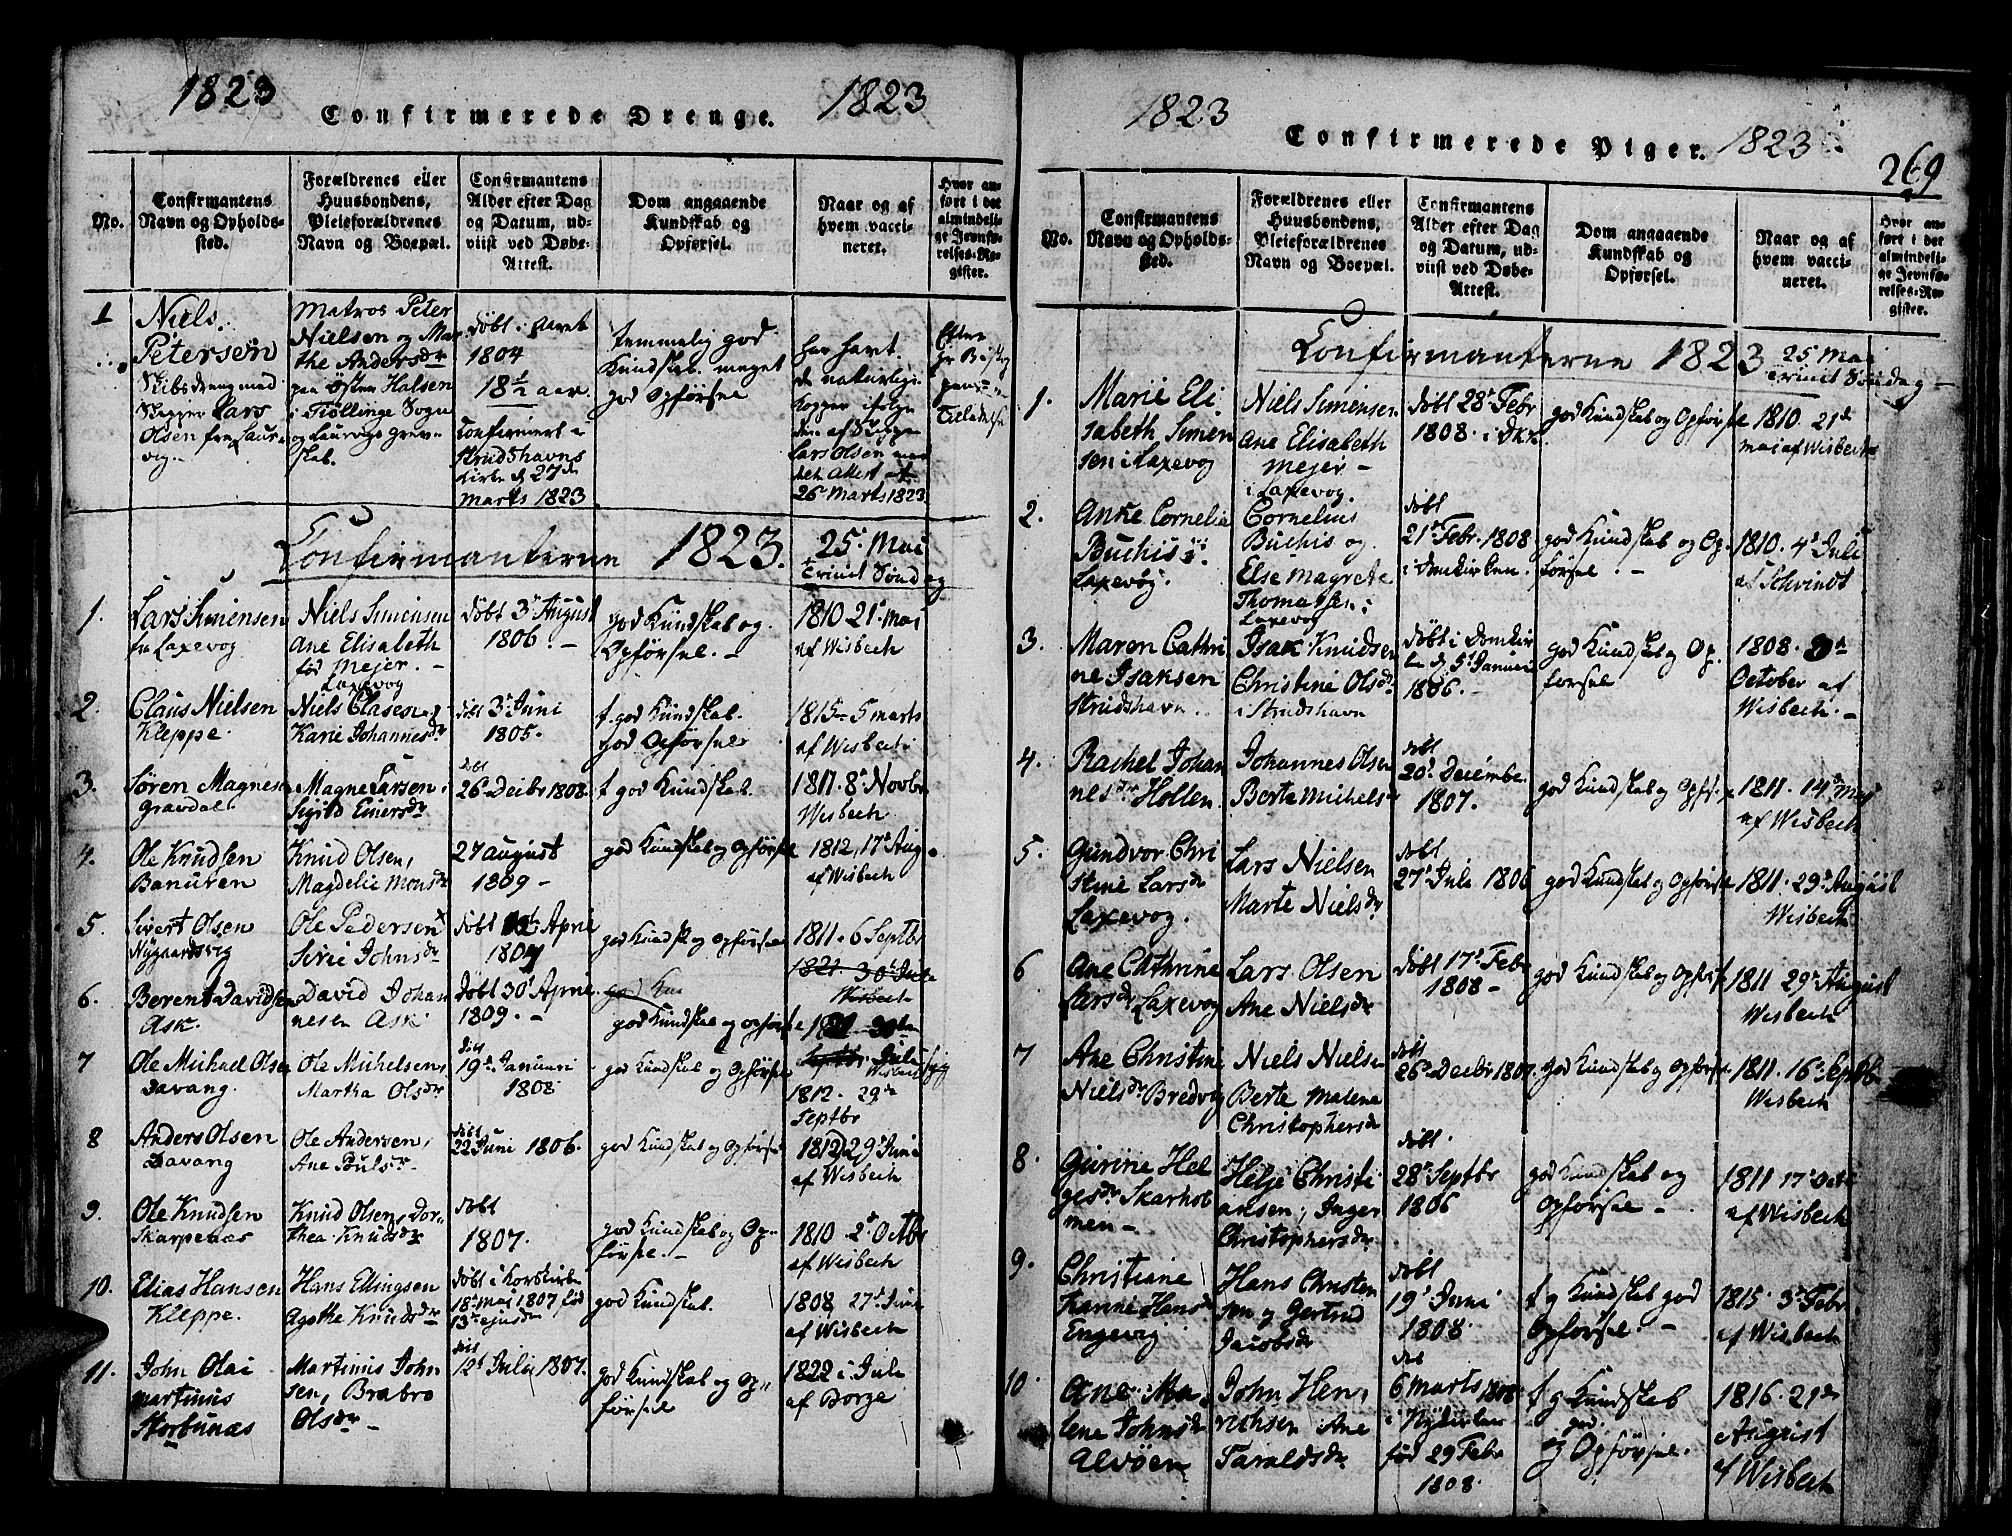 1823
Confirmerede Drenge.
1823
No.
Confirmantens
Navn og Opholds-
sted.
Forældrenes eller
Huusbondens,
Pleieforældrenes
Navn og Boepæl.
Confirmantens
Alder efter Dag
og Datum, ud-
viist ved Døbe-
Attest.
Dom angaaende
Kundskab og
Opførsel.
Naar og af
hvem vacci-
neret.
Hvor an-
ført i det
almindeli-
ge Jevnfø-
relses-Re-
gister.
1
Niels
Petersen
Skibsdreng med
Skipper Lars
Olsen fra Laur-
vig.
Matros Peter
Nielsen og Mar
the Andersdr
paa Østre Halsen
i Tiøllinge Sogn
og Laurvigs grev-
skab.
døbt i Aaret
1804
18½ aar
Confirmert i
Strudshavns
Kirke d 27de
Marts 1823
temmelig god
Kundskab. meget
god Opførsel
har havt
de naturlige
Kopper ifølge
Lars Olsen med
delt Attest af
26 Marts 1823
Efter
Hr Biskop
Tiladelse
Confirmanterne 1823. 25. Mai
Trinit Søndag
1.
Lars Simensen
fra Laxevog
Niels Simensen
Ane Elisabeth
fød Mejer. -
Laxevog
døbt 3 August
1806. -
god Kundskab og
Opførsel. -
1810 21 Mai
af Wisbech
2.
Claus Nielsen
Kleppe.
Niels Clasen og
Karie Johannesdr
døbt 3 Juni
1805.
t. god Kundskab.
god Opførsel
1815 5 Marts
af Wisbech
3.
Søren Magnesen
Gravdal
Magne Larsen,
Sigrid Einersdr
døbt
26 Decbr 1808.
t god Kundskab.
1811. 8 Novbr
Wisbech
4.
Ole Knudsen
Banuren
Knud Olsen,
Magdelie Monsdr
27 August
1809 -
god Kundskab og Opførsel
1812, 17 Aug.
af Wisbech
5.
Sivert Olsen
Nygaardsvig
Ole Pedersen
Sirie Johnsdr
døbt April
1807
god Kundsk og Opførsel
1811. 6 Septbr
1821 30 Juli
Wisbech
6.
Berent Davidsen
Ask.
David Johan
nesen Ask
Døbt 30 April
1809. -
god Kun
god Kundskab og Opførsel
7
Ole Michael Olsen
Davang.
Ole Michelsen,
Martha Olsdr
døbt
19de Januari
1808
god Kundskab og Opførsel
1812. 29de
Septbr
8
Anders Olsen
Davang
Ole Andersen,
Ane Pulsdr
døbt
22 Juni 1806.
god Kundskab og Opførsel
1812 29 Juni
af Wisbech
9.
Ole Knudsen
Skarpenæs
Knud Olsen, Dor-
thea Knudsdr
døbt
1807.
god Kundskab og Op-
førsel. -
1810 2 Octbr
af Wisbech
10.
Elias Hansen
Kleppe.
Hans Ellingsen
Agathe Knudsdr
døbt i Korskirke
18de Mai 1807 fød
13de ejusdem
god Kundskab.
1808 27 Juni
af Wisbech
11.
John Olai
Martinus
Storbunæs
Martinus John
sen, Brabro
Olsdr -
døbt
12 Juli 1807.
god Kundskab og Op-
førsel
1822 i Juli
af Borge
1823
Confirmerede Piger.
1823
269
No.
Confirmantens
Navn og Opholds-
sted.
Forældrenes eller
Huusbondens,
Pleieforældrenes
Navn og Boepæl.
Confirmantens
Alder efter Dag
og Datum, ud-
viist ved Døbe-
Attest.
Dom angaaende
Kundskab og
Opførsel.
Naar og af
hvem vacci-
neret.
Hvor an-
ført i det
almindeli-
ge Jevnfø-
relses-Re-
gister.
Confirmanterne 1823 25 Mai
Trinit Søndag
1.
Marie Eli
sabeth Simen
sen i Laxevog
Niels Simensen
Ane Elisabeth
Mejer -
i Laxevog.
døbt 28 Febr
1808. i Dk.
god Kundskab og Opførsel
1810. 21de
Mai af Wisbech
2.
Anne Cornelia
Buchis i
Laxevog.
Cornelius
Buchis og
Else Magrete
Thomassen i
Laxevog
døbt
21 Febr. 1808
i Domkirken.
god Kundskab og Op-
førsel. -
1810. 4 Juli
af Schvindt
3.
Maren Cathri
ne Isaksen
Strudshavn
Isak Knudsen
Christine Olsdr
i Strudshavn
døbt i Domkir
ken d. 5 Januari
1806. -
god Kundskab og Op-
førsel
1808. 3de
October af
Wisbech. -
4.
Rachel Johan
nesdr Hollen
Johannes Olsen
Berte Michelsdr
døbt
20 December
1807.
god Kundskab og Opførsel
1811. 14de Mai
af Wisbech
5.
Gundvor Chri
stine Larsdr
Laxevog.
Lars Nielsen
Marte Nielsdr
døbt
27 Juli 1806
god Kundskab og Opførsel
1811. 29 August
Wisbech
6
Ane Cathrine
Larsdr Laxevog
Lars Olsen
Ane Nielsdr
døbt 17 Febr
1808 -
god Kundskab og Opførsel
1811 29 August
Wisbech
7
Ane Christine
Nielsdr Bredvig
Niels Nielsen
Berte Malena
Christophersdr
døbt
26 Decbr 1807
god Kundskab og Opførsel
1811. 16 Septb
Wisbech
8.
Gurine Hel
gesdr Skarhol
men -
Helje Christi
ansen, Inger
Christophersdr
døbt
28 Septbr
1806
god Kundskab og
Opførsel -
1811 17 Octb
af Wisbech
9.
Christiane
Hanne Hansdr
Engevig
Hans Christen
sen og Gertrud
Jacobsdr
døbt
19 Juni
1808.
t g Kundskab god
Opførsel. -
1815. 3 Febr
af Wisbech
10
Ane Ma
lene Johnsdr
Alvøen
John Hen
richsen Ane
Taraldsdr
døbt
6 Marts 1808
i Nykirken
fød 29 Febr
1808.
t g Kundskab
god
og Opførsel.
1816. 21de
August
af Wisbech